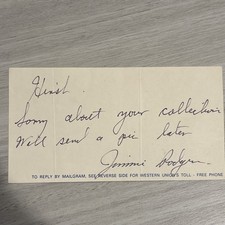 Sorry about your collection
Will send a pic later
Jimmie Rodgers
TO REPLY BY MAILGRAM, SEE REVERSE SIDE FOR WESTERN UNION'S TOLL - FREE PHONE